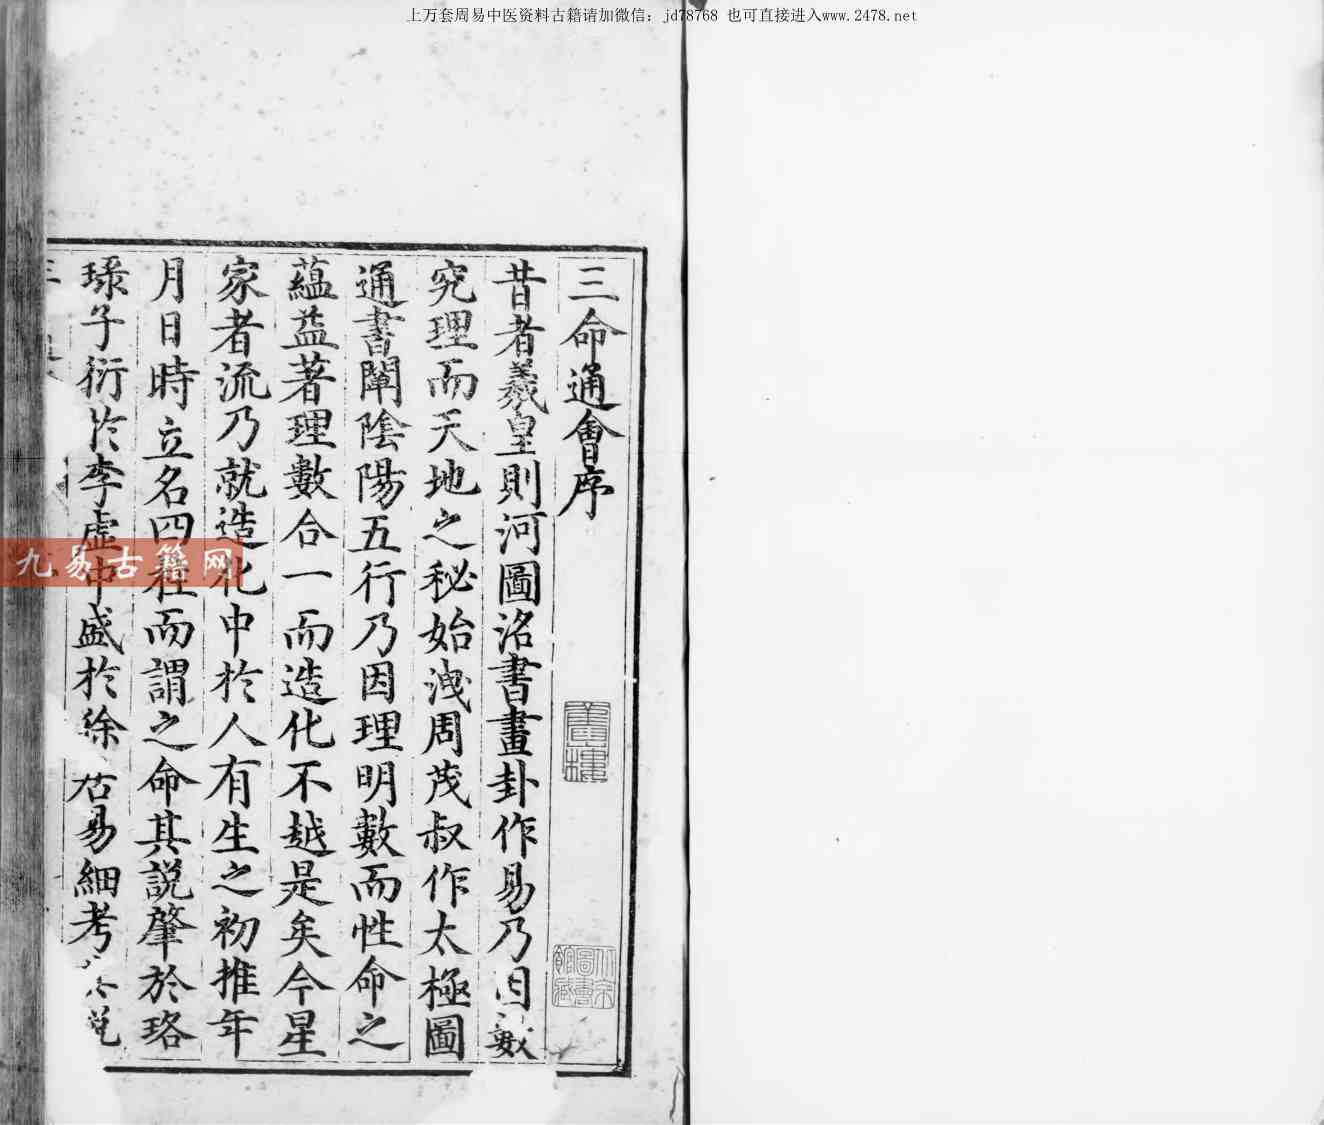 上万套周易中医资料古籍请加微信：jd78768 也可直接进入www.2478.net
三命通會序
昔者羲皇則河圖洛書畫卦作易乃因數
究理而天地之秘始洩周茂叔作太極圖
通書闡陰陽五行乃因理明數而性命之
蘊益著理數合一而造化不越是矣今星
家者流乃就造化中於人有生之初推年
月日時立名四柱而謂之命其說肇於珞
琭子衍於李虛中盛於徐居易細考其說
九易古籍网
北京圖書館藏